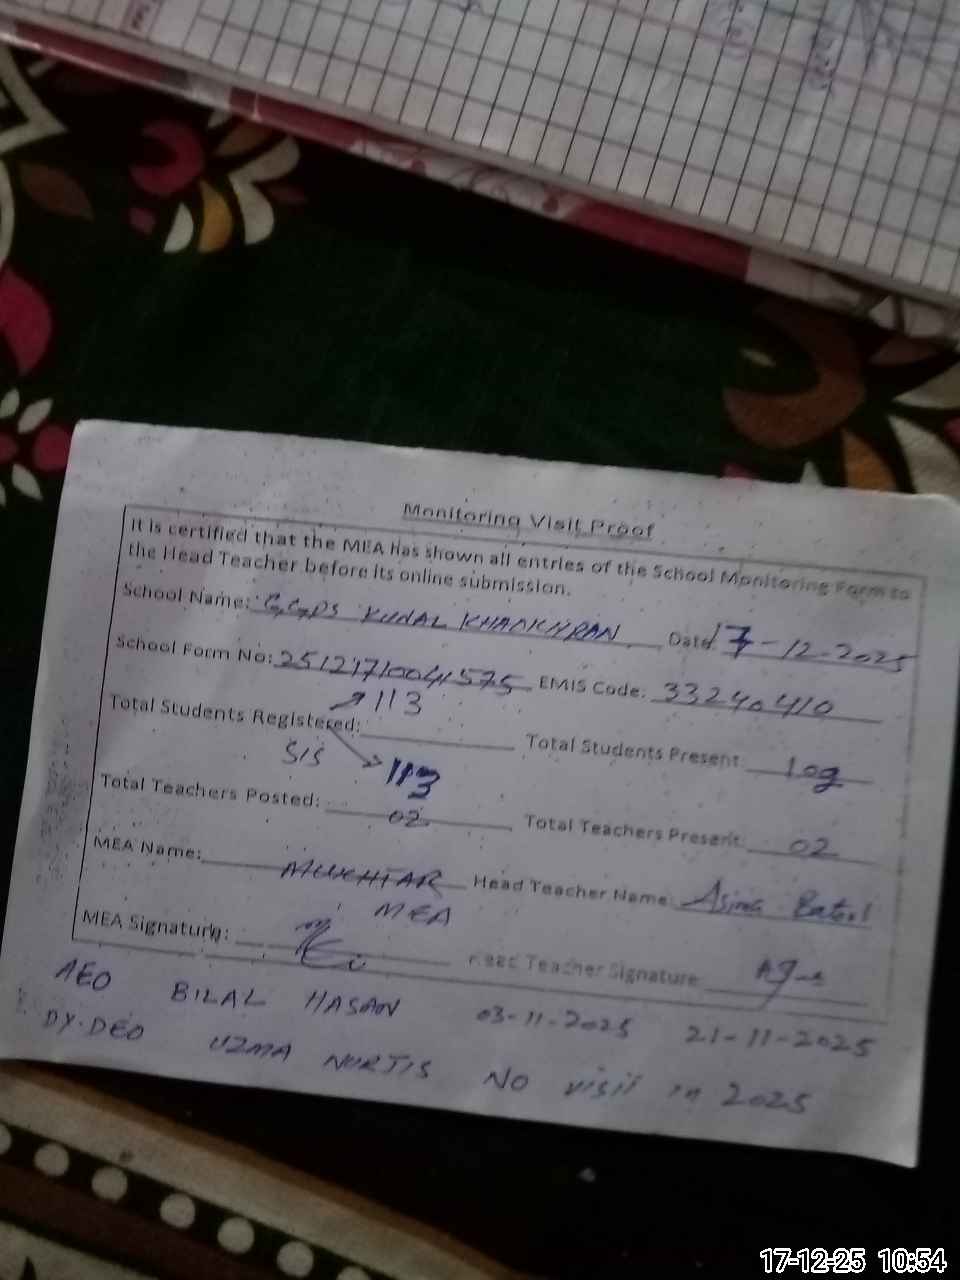 Monitoring Visit Proof
It is certified that the MEA has shown all entries of the School Monitoring Form to
the Head Teacher before its online submission.
School Name: GGPS KUNAL KHANKHRAN Date: 17-12-2025
School Form No: 25121710041575 EMIS Code: 33240410
113
Total Students Registered: Total Students Present: 109
SIS 113
Total Teachers Posted: 02 Total Teachers Present: 02
MEA Name: MUKHTAR Head Teacher Name: Asima Batool
MEA
MEA Signature: Head Teacher Signature
AEO BILAL HASAN 03-11-2025 21-11-2025
DY.DEO UZMA NURJIS NO visit in 2025
17-12-25 10:54